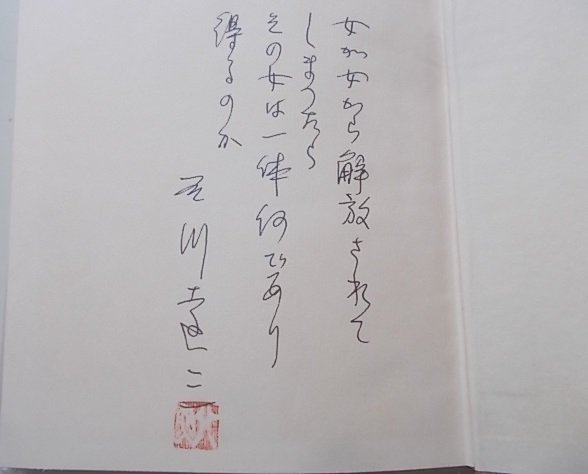 女が女から解放されて
しまったら
その女は一体何であり
得るのか
石川達三